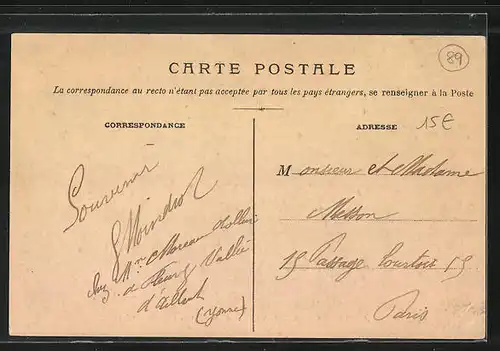 89
CARTE POSTALE
La correspondance au recto n'étant pas acceptée par tous les pays étrangers, se renseigner à la Poste
CORRESPONDANCE
ADRESSE
15€
Souvenir
chez Mme Moreau
à Fleury Vallée
d'Aillant
(Yonne)
Monsieur et Madame
Messon
15 Passage Courtois 15
Paris